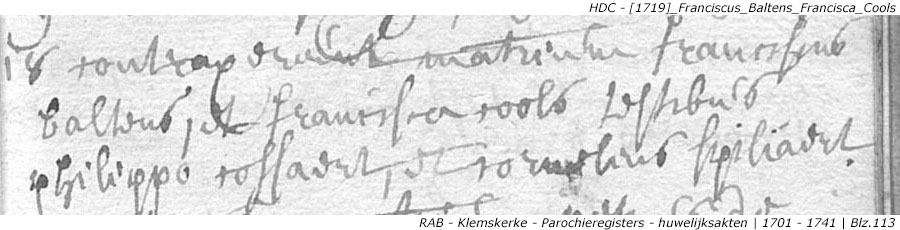 HDC - [1719]_Franciscus_Baltens_Francisca_Cools
18 contraxerunt matrimm franciscus
baltens, et francisca cools testibus
philippo cossaert, et cornelius spiliaert.
RAB - Klemskerke - Parochieregisters - huwelijksakten | 1701 - 1741 | Blz.113